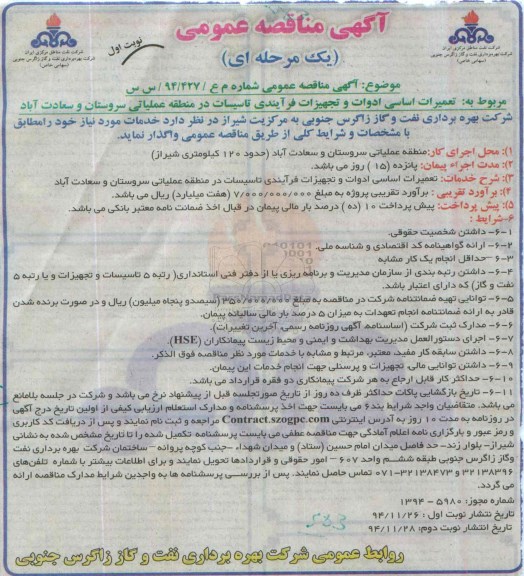 آگهی مناقصه عمومی
(یک مرحله ای)
نوبت اول
شرکت نفت مناطق مرکزی ایران
شرکت بهره برداری نفت و گاز زاگرس جنوبی
(سهامی خاص)
شرکت نفت مناطق مرکزی ایران
شرکت بهره برداری نفت و گاز زاگرس جنوبی
(سهامی خاص)
موضوع: آگهی مناقصه عمومی شماره م ع / ۹۴/۴۲۷ / س س
مربوط به: تعمیرات اساسی ادوات و تجهیزات فرآیندی تاسیسات در منطقه عملیاتی سروستان و سعادت آباد
شرکت بهره برداری نفت و گاز زاگرس جنوبی به مرکزیت شیراز در نظر دارد خدمات مورد نیاز خود رامطابق
با مشخصات و شرایط کلی از طریق مناقصه عمومی واگذار نماید.
۱): محل اجرای کار: منطقه عملیاتی سروستان و سعادت آباد (حدود ۱۲۰ کیلومتری شیراز)
۲): مدت اجراء پیمان: پانزده (۱۵) روز می باشد.
۳): شرح خدمات: تعمیرات اساسی ادوات و تجهیزات فرآیندی تاسیسات در منطقه عملیاتی سروستان و سعادت آباد
۴): برآورد تقریبی : برآورد تقریبی پروژه به مبلغ ۷/۰۰۰/۰۰۰/۰۰۰ (هفت میلیارد) ریال می باشد.
۵): پیش پرداخت: پیش پرداخت ۱۰ (ده ) درصد بار مالی پیمان در قبال اخذ ضمانت نامه معتبر بانکی می باشد.
۶- شرایط :
۶-۱- داشتن شخصیت حقوقی.
۶-۲- ارائه گواهینامه کد اقتصادی و شناسه ملی.
۶-۳- حداقل انجام یک کار مشابه
۶-۴- داشتن رتبه بندی از سازمان مدیریت و برنامه ریزی یا از دفتر فنی استانداری( رتبه ۵ تاسیسات و تجهیزات و یا رتبه ۵
نفت و گاز) که دارای اعتبار باشد.
۶-۵- توانایی تهیه ضمانتنامه شرکت در مناقصه به مبلغ ۳۵۰/۰۰۰/۰۰۰ (سیصدو پنجاه میلیون) ریال و در صورت برنده شدن
قادر به ارائه ضمانتنامه انجام تعهدات به میزان ۵ درصد بار مالی سالیانه پیمان.
۶-۶- مدارک ثبت شرکت (اساسنامه، آگهی روزنامه رسمی، آخرین تغییرات).
۶-۷- اجرای دستورالعمل مدیریت بهداشت و ایمنی و محیط زیست پیمانکاران (HSE).
۶-۸- داشتن سابقه کار مفید، معتبر، مرتبط و مشابه با خدمات مورد نظر مناقصه فوق الذکر.
۶-۹- داشتن توانایی مالی، تجهیزات و پرسنلی جهت انجام خدمات این پیمان.
۶-۱۰- حداکثر کار قابل ارجاع به هر شرکت پیمانکاری دو فقره قرارداد می باشد.
۶-۱۱- تاریخ بازگشایی پاکات حداکثر ظرف ده روز از تاریخ صورتجلسه قبل از پیشنهاد نرخ می باشد و شرکت در جلسه بلامانع
می باشد. متقاضیان واجد شرایط بند۶ می بایست جهت اخذ پرسشنامه و مدارک استعلام ارزیابی کیفی از اولین تاریخ درج آگهی
در روزنامه به مدت ۱۰ روز به آدرس اینترنتی Contract.szogpc.com مراجعه و ثبت نام نمایند و پس از دریافت کد کاربری
و رمز عبور و بارگزاری نامه اعلام آمادگی جهت مناقصه عطفی می بایست پرسشنامه تکمیل شده را تا تاریخ مشخص شده به نشانی
شیراز- بلوار زند- حد فاصل میدان امام حسین (ستاد) و میدان شهداء -جنب کوچه پروانه - ساختمان شرکت بهره برداری نفت
وگاز زاگرس جنوبی طبقه ششم واحد ۶۰۷ - امور حقوقی و قراردادها تحویل نمایند و برای اطلاعات بیشتر با شماره تلفن‌های
۳۲۱۳۸۳۹۶ و ۳۲۱۳۸۴۷۳-۰۷۱ تماس حاصل نمایند. پس از بررسی پرسشنامه ها به واجدین شرایط مدارک مناقصه ارائه
می گردد.
شماره مجوز: ۵۹۸۰ - ۱۳۹۴
تاریخ نتشار نوبت اول : ۹۴/۱۱/۲۶
تاریخ انتشار نوبت دوم: ۹۴/۱۱/۲۸
روابط عمومی شرکت بهره برداری نفت و گاز زاگرس جنوبی